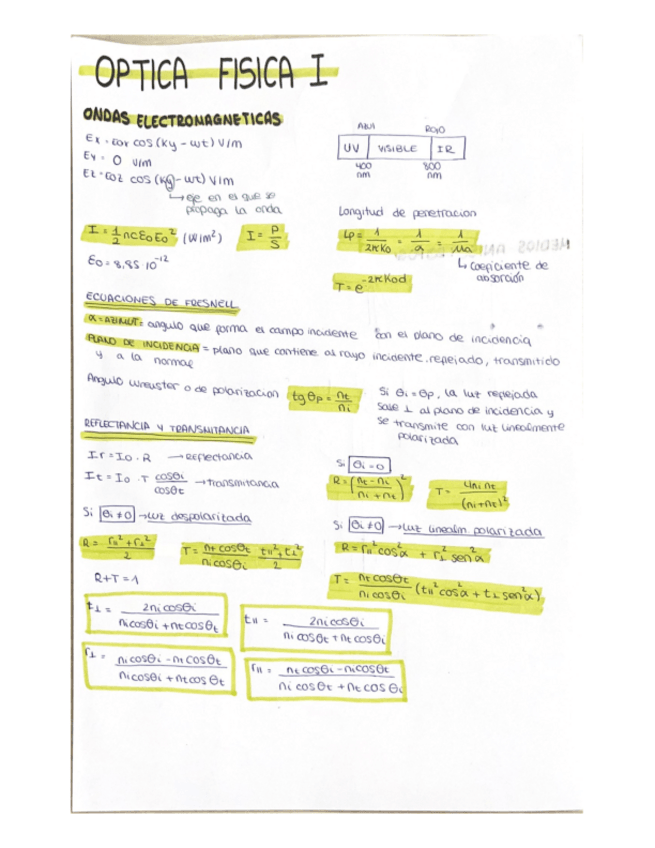 OPTICA FISICA I
ONDAS ELECTROMAGNETICAS
Ex = Eox cos (ky - wt) V/m
Ey = 0 V/m
Ez = Eoz cos (ky - wt) V/m
↳ eje en el que se
propaga la onda
I = 1/2 n c ε0 E0² (W/m²) I = P/S
ε0 = 8,85 · 10⁻¹²
AZUL ROJO
UV VISIBLE IR
400 nm 800 nm
Longitud de penetracion
Lp = 1/2kK0 = 1/α = 1/μa
↳ coeficiente de
absorción
T = e^-2kK0d
ECUACIONES DE FRESNELL
α = AZIMUT = angulo que forma el campo incidente con el plano de incidencia
PLANO DE INCIDENCIA = plano que contiene al rayo incidente, reflejado, transmitido
y a la normal
Angulo o de polarizacion tg θp = nt/ni
Si θi = θp, la luz reflejada
sale ⊥ al plano de incidencia y
se transmite con luz linealmente
polarizada
REFLECTANCIA Y TRANSMITANCIA
Ir = I0 · R → reflectancia
It = I0 · T cosθi/cosθt → transmitancia
Si θi ≠ 0 → luz despolarizada
R = (r||² + r⊥²)/2 T = (nt cosθt/ni cosθi) (t||² + t⊥²)/2
R + T = 1
Si θi = 0
R = ((nt - ni)/(ni + nt))² T = 4ni nt/(ni + nt)²
Si θi ≠ 0 → luz linealm. polarizada
R = r||² cos²α + r⊥² sen²α
T = (nt cosθt/ni cosθi) (t||² cos²α + t⊥ sen²α)
t⊥ = 2ni cosθi/(ni cosθi + nt cosθt) t|| = 2ni cosθi/(ni cosθt + nt cosθi)
r⊥ = (ni cosθi - nt cosθt)/(ni cosθi + nt cosθt) r|| = (nt cosθi - ni cosθt)/(ni cosθt + nt cosθi)